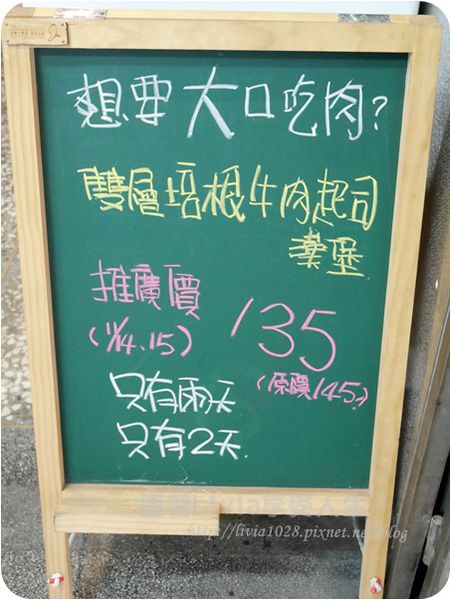 想要大口吃肉?
雙層培根牛肉起司
漢堡
推廣價
(11/14.15)
135
(原價145.)
只有兩天
只有2天.
http://livia1028.pixnet.net/blog